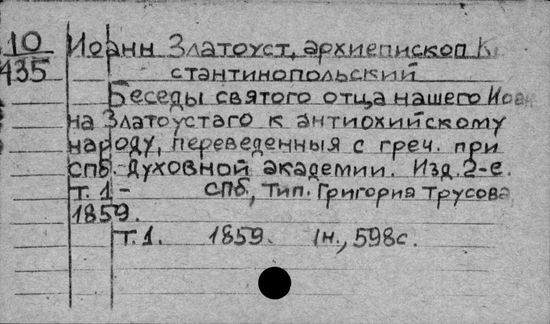 10 Иоанн Златоуст, архиепископ К
435 стантинопольский
Беседы святого отца нашего Иоан
на Златоустаго к антиохийскому
народу, переведенныя с греч. при
спб. духовной академии. Изд. 2-е.
Т. 1 - СПб, Тип. Григория Трусова,
1859.
Т. 1. 1859. 1н., 598с.